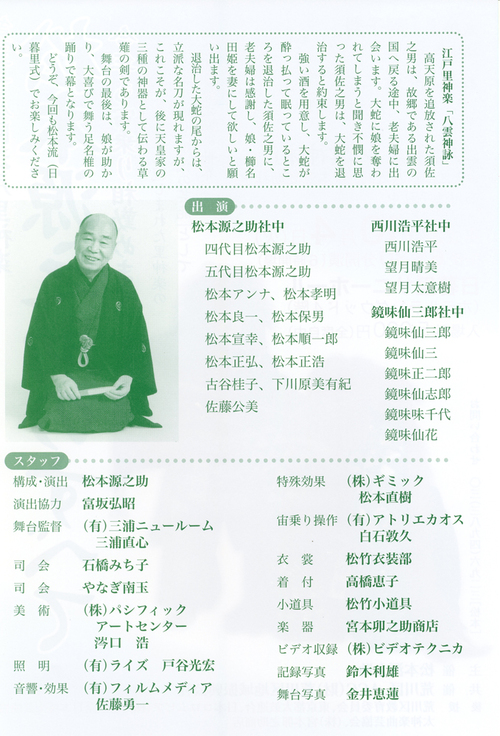 江戸里神楽「八雲神詠」
高天原を追放された須佐
之男は、故郷である出雲の
国へ戻る途中、老夫婦に出
会います。大蛇に娘を奪わ
れてしまうと聞き不憫に思
った須佐之男は、大蛇を退
治すると約束します。
強い酒を用意し、大蛇が
酔っ払って眠っているとこ
ろを退治した須佐之男に、
老夫婦は感謝し、娘・櫛名
田姫を妻にして欲しいと願
い出ます。
退治した大蛇の尾からは、
立派な名刀が現れますが、
これこそが、後に天皇家の
三種の神器として伝わる草
薙の剣であります。
舞台の最後は、娘が助か
り、大喜びで舞う足名椎の
踊りで幕となります。
どうぞ、今回も松本流（日
暮里式）でお楽しみくださ
い。
出演
松本源之助社中
四代目松本源之助
五代目松本源之助
松本アンナ、松本孝明
松本良一、松本保男
松本宣幸、松本順一郎
松本正弘、松本正浩
古谷桂子、下川原美有紀
佐藤公美
西川浩平社中
西川浩平
望月晴美
望月太意樹
鏡味仙三郎社中
鏡味仙三郎
鏡味仙三
鏡味正二郎
鏡味仙志郎
鏡味味千代
鏡味仙花
スタッフ
構成・演出 松本源之助
演出協力 富坂弘昭
舞台監督 （有）三浦ニュールーム
三浦直心
司会 石橋みち子
司会 やなぎ南玉
美術 （株）パシフィック
アートセンター
澪口 浩
照明 （有）ライズ 戸谷光宏
音響・効果 （有）フィルムメディア
佐藤勇一
特殊効果 （株）ギミック
松本直樹
宙乗り操作 （有）アトリエカオス
白石敦久
衣裳 松竹衣装部
着付 高橋恵子
小道具 松竹小道具
楽器 宮本卯之助商店
ビデオ収録 （株）ビデオテクニカ
記録写真 鈴木利雄
舞台写真 金井恵蓮